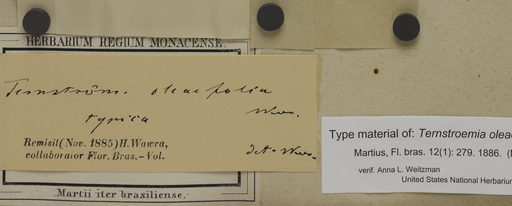 HERBARIUM REGIUM MONACENSE.
Ternström. oleaefolia
Wwr.
typica
Remisit (Nov. 1885) H. Wawra,
collaborator Flor. Bras.-Vol.
det. Wwr.
Martii iter brasiliense.
Type material of: Ternstroemia oleae
Martius, Fl. bras. 12(1): 279. 1886.
verif. Anna L. Weitzman
United States National Herbarium